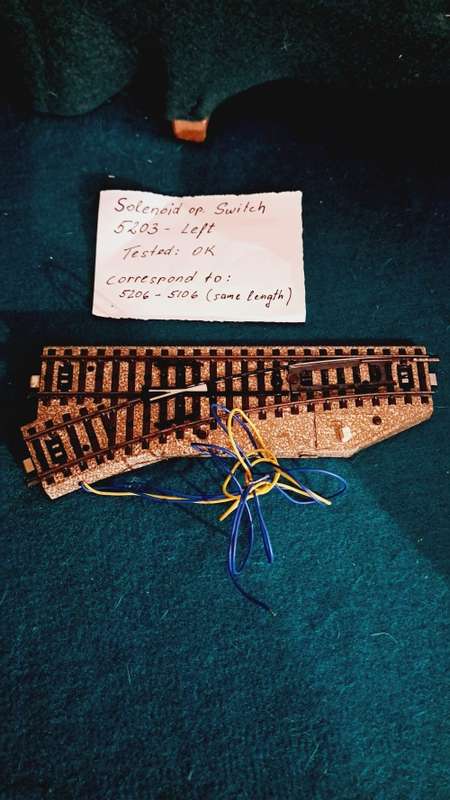 Solenoid op. Switch
5203 - Left
Tested: OK
Correspond to:
5206 - 5106 (same length)